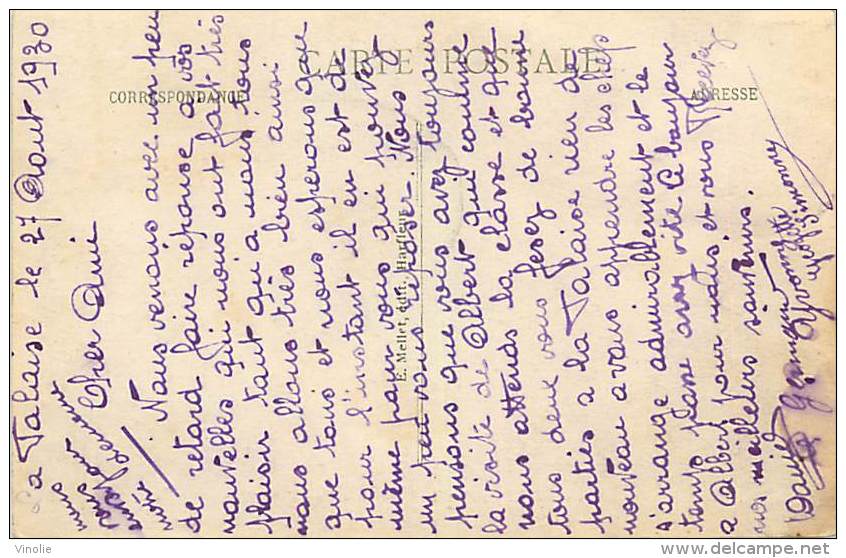 CARTE POSTALE
CORRESPONDANCE
ADRESSE
E. Mellet, édit., Harfleur
La Falaise le 27 Aout 1930
Cher Ami
Nous venons avec un peu
de retard faire réponse a vos
nouvelles qui nous ont fait très
plaisir tant qu'a nous nous
nous allons très bien ainsi
que tous et nous esperons que
pour l'instant il en est de
même pour vous qui pouvez
un peu vous reposer. Nous
pensons que vous avez toujours
la visite de Albert qui continue
nous attends la classe et que
tous deux vous fesez de bonne
parties a la Falaise rien de
nouveau a vous apprendre les
s'arrange admirablement et le
temps passe assez vite Le bonjour
a Albert pour nous et vous Recevez
nos meilleurs souvenirs.
David Germain Yvonnette
Simonne